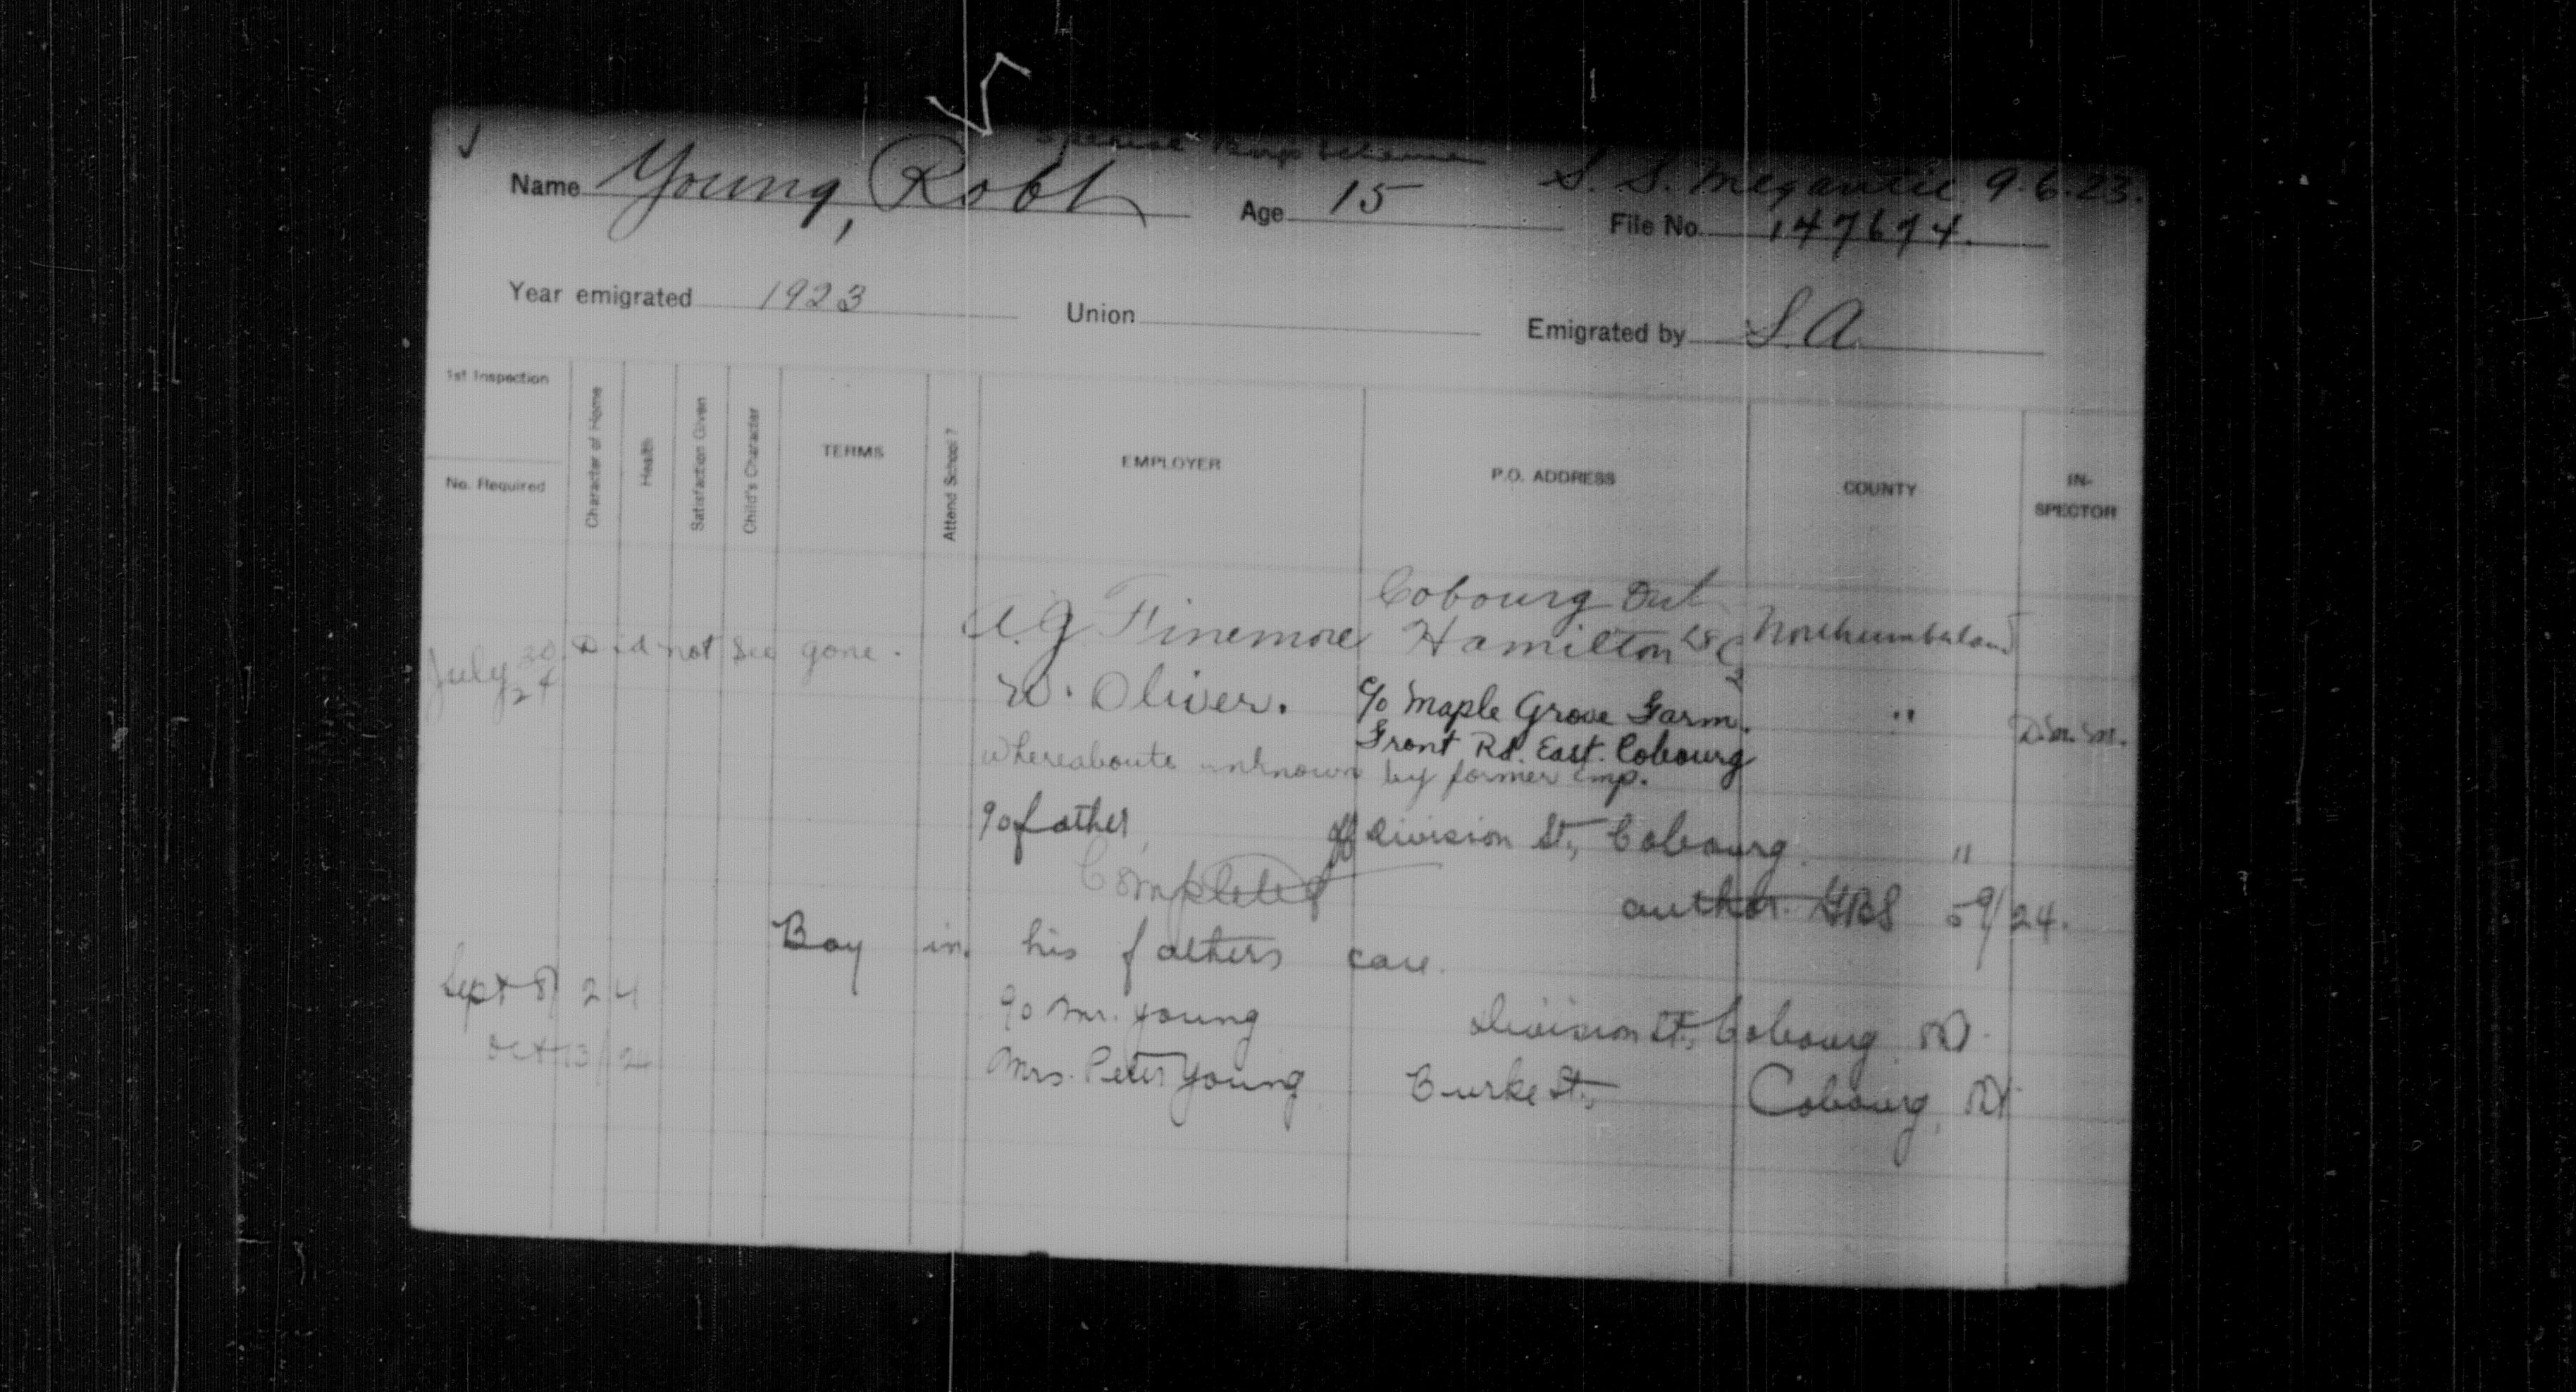 Special Boys Scheme
S. S. Megantic 9.6.23.
Name Young, Robt Age 15 File No. 147674.
Year emigrated 1923 Union Emigrated by S.A.
1st Inspection
No. Required
Character of Home
Health
Satisfaction Given
Child's Character
TERMS
Attend School?
EMPLOYER
P.O. ADDRESS
COUNTY
IN-
SPECTOR
Cobourg Ont
July 30 24 Did not see gone. A.G Finemore Hamilton Northumberland
W. Oliver. c/o Maple Grove Farm. " D.M.M.
Front Rd. East. Cobourg
Whereabouts unknown by former Emp.
c/o father, off Division St., Cobourg. "
Completed
author. GBS 5 9/24.
Boy in his fathers care.
Sept 8/24 c/o Mr. Young Division St., Cobourg,
Oct 13/24 Mrs. Peter Young Burke St., Cobourg,